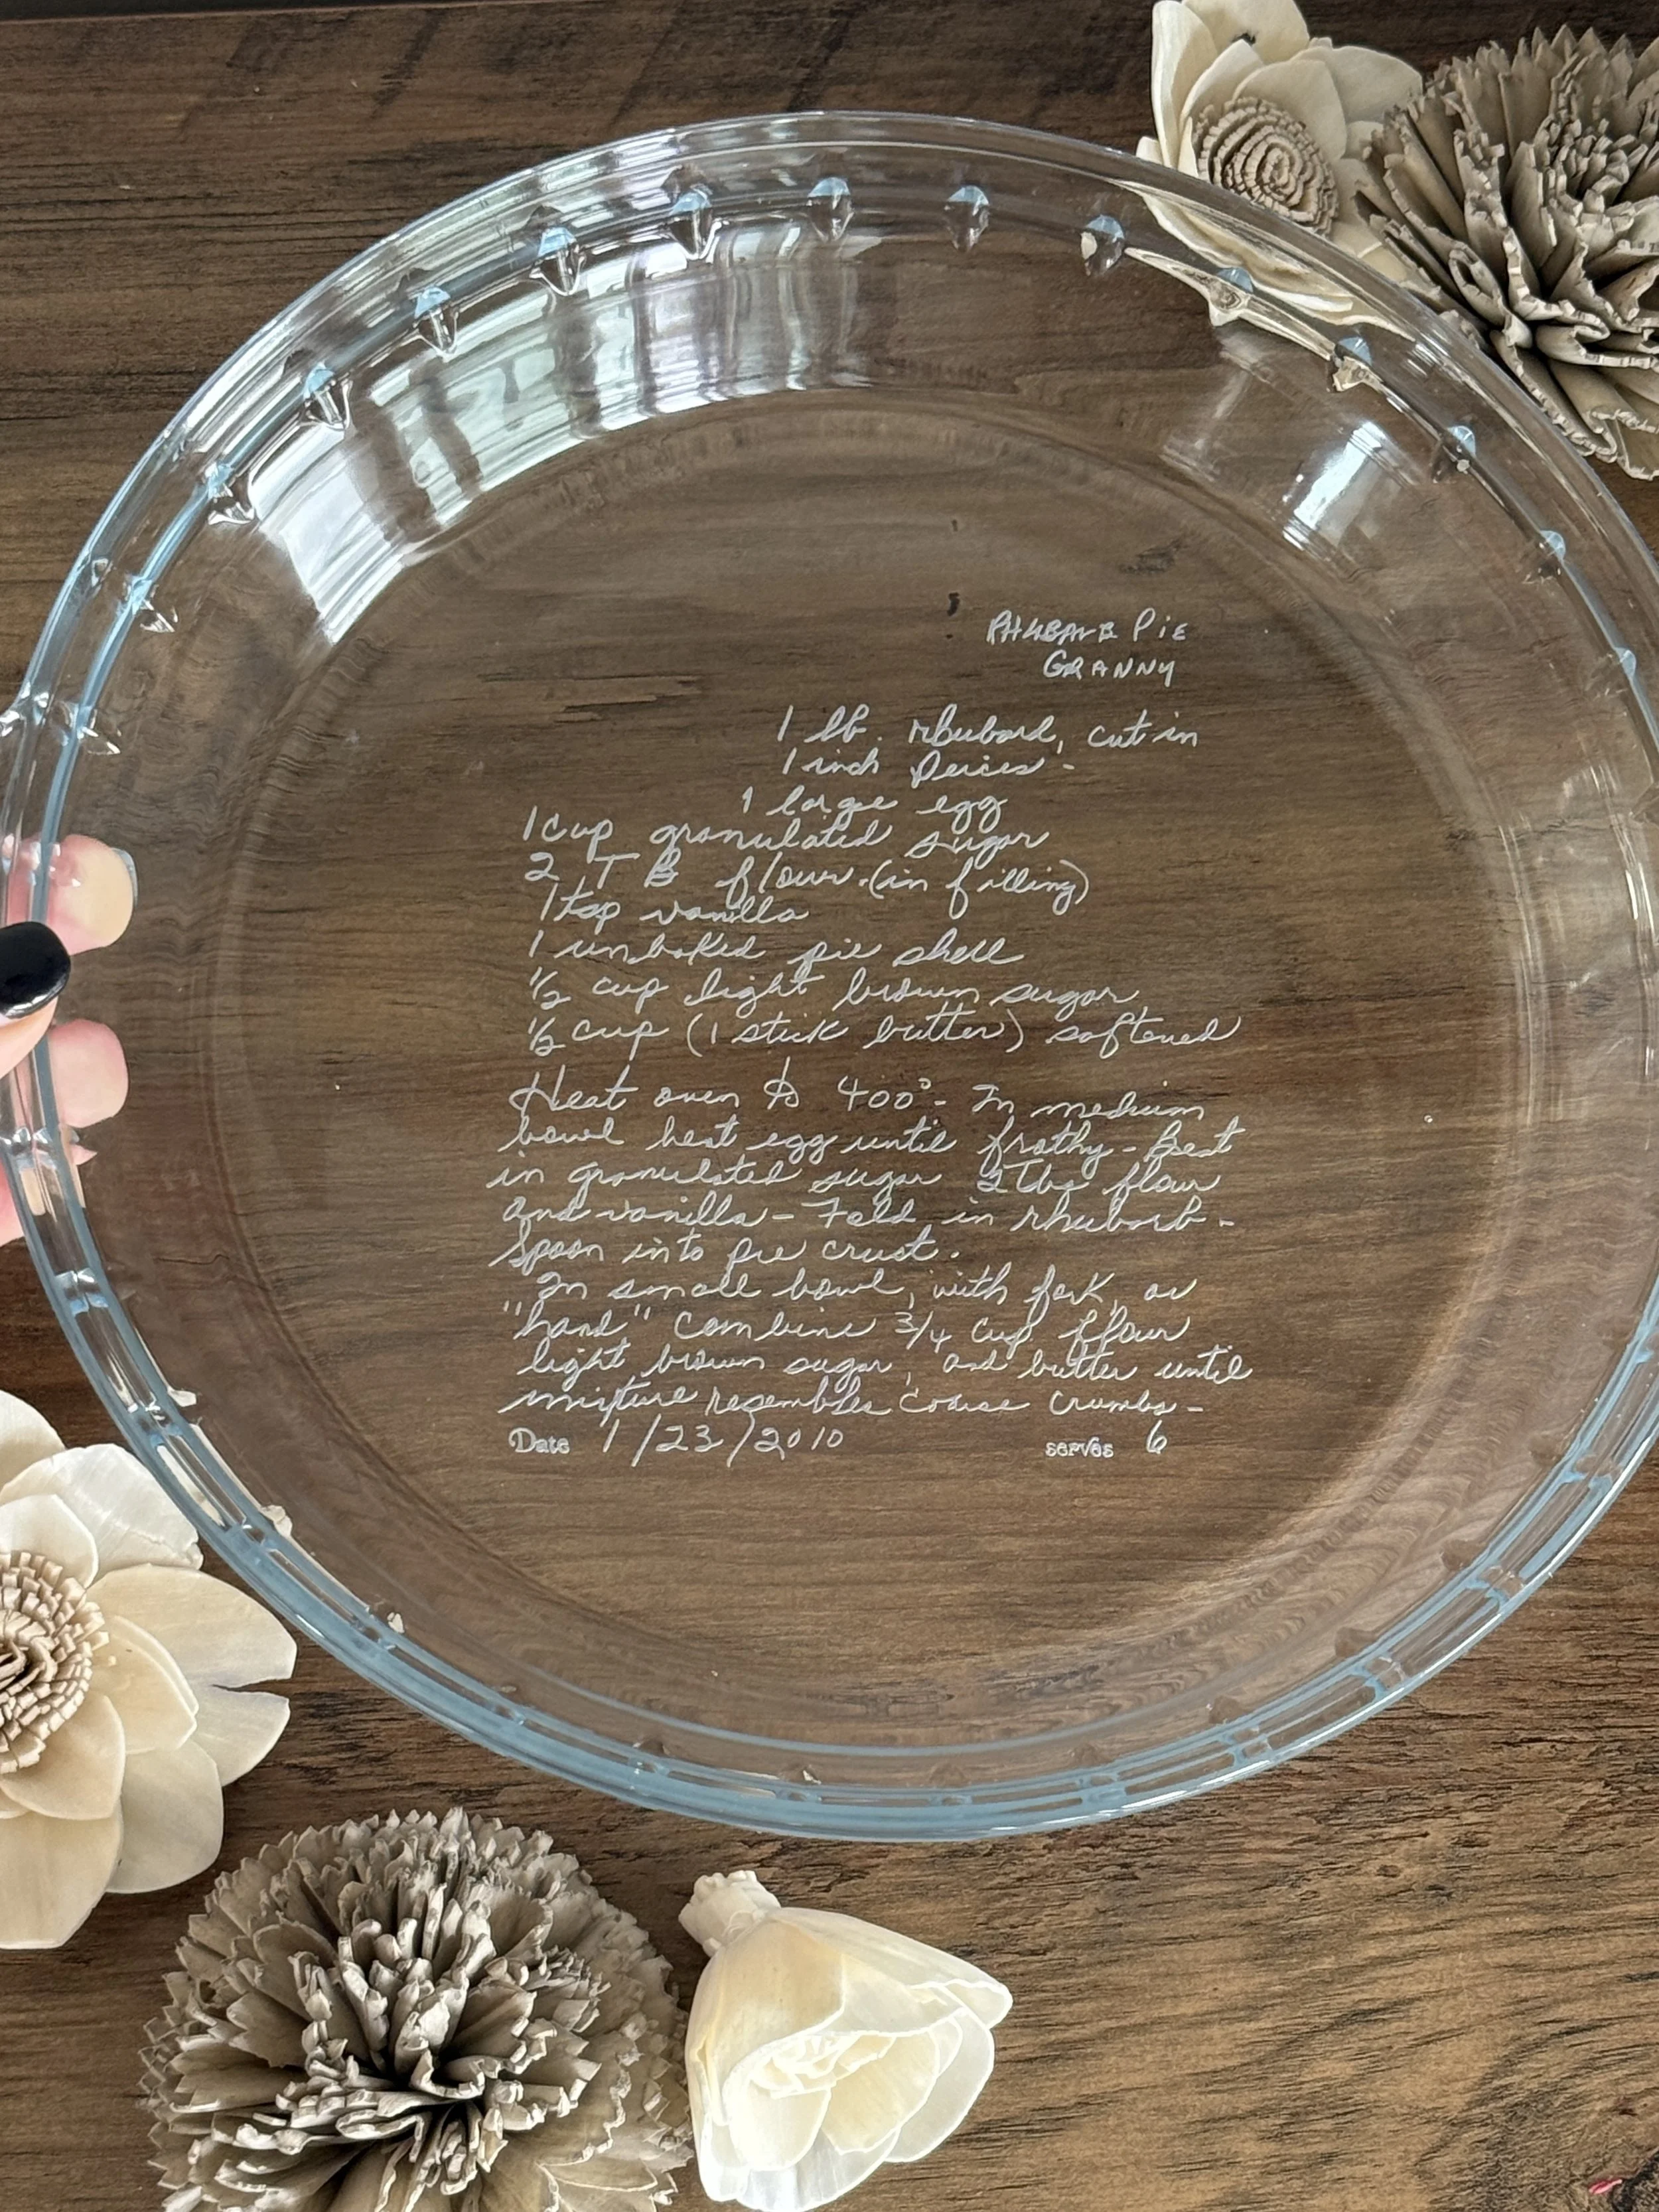 RHUBARB PIE
GRANNY
1 lb. rhubard, cut in
1 inch peices -
1 large egg
1 cup granulated sugar
2 TB flour. (in filling)
1 tsp vanilla
1 unbaked pie shell
1/2 cup light brown sugar
1/2 cup (1 stick butter) softened
Heat oven to 400° - In medium
bowl beat egg until frothy - Beat
in granulated sugar 2 Tbs flour
and vanilla - Fold in rhubarb -
Spoon into pie crust.
In small bowl, with fork, or
"hand" combine 3/4 cup flour
light brown sugar, and butter until
mixture resembles coarse crumbs -
Date 1/23/2010 serves 6